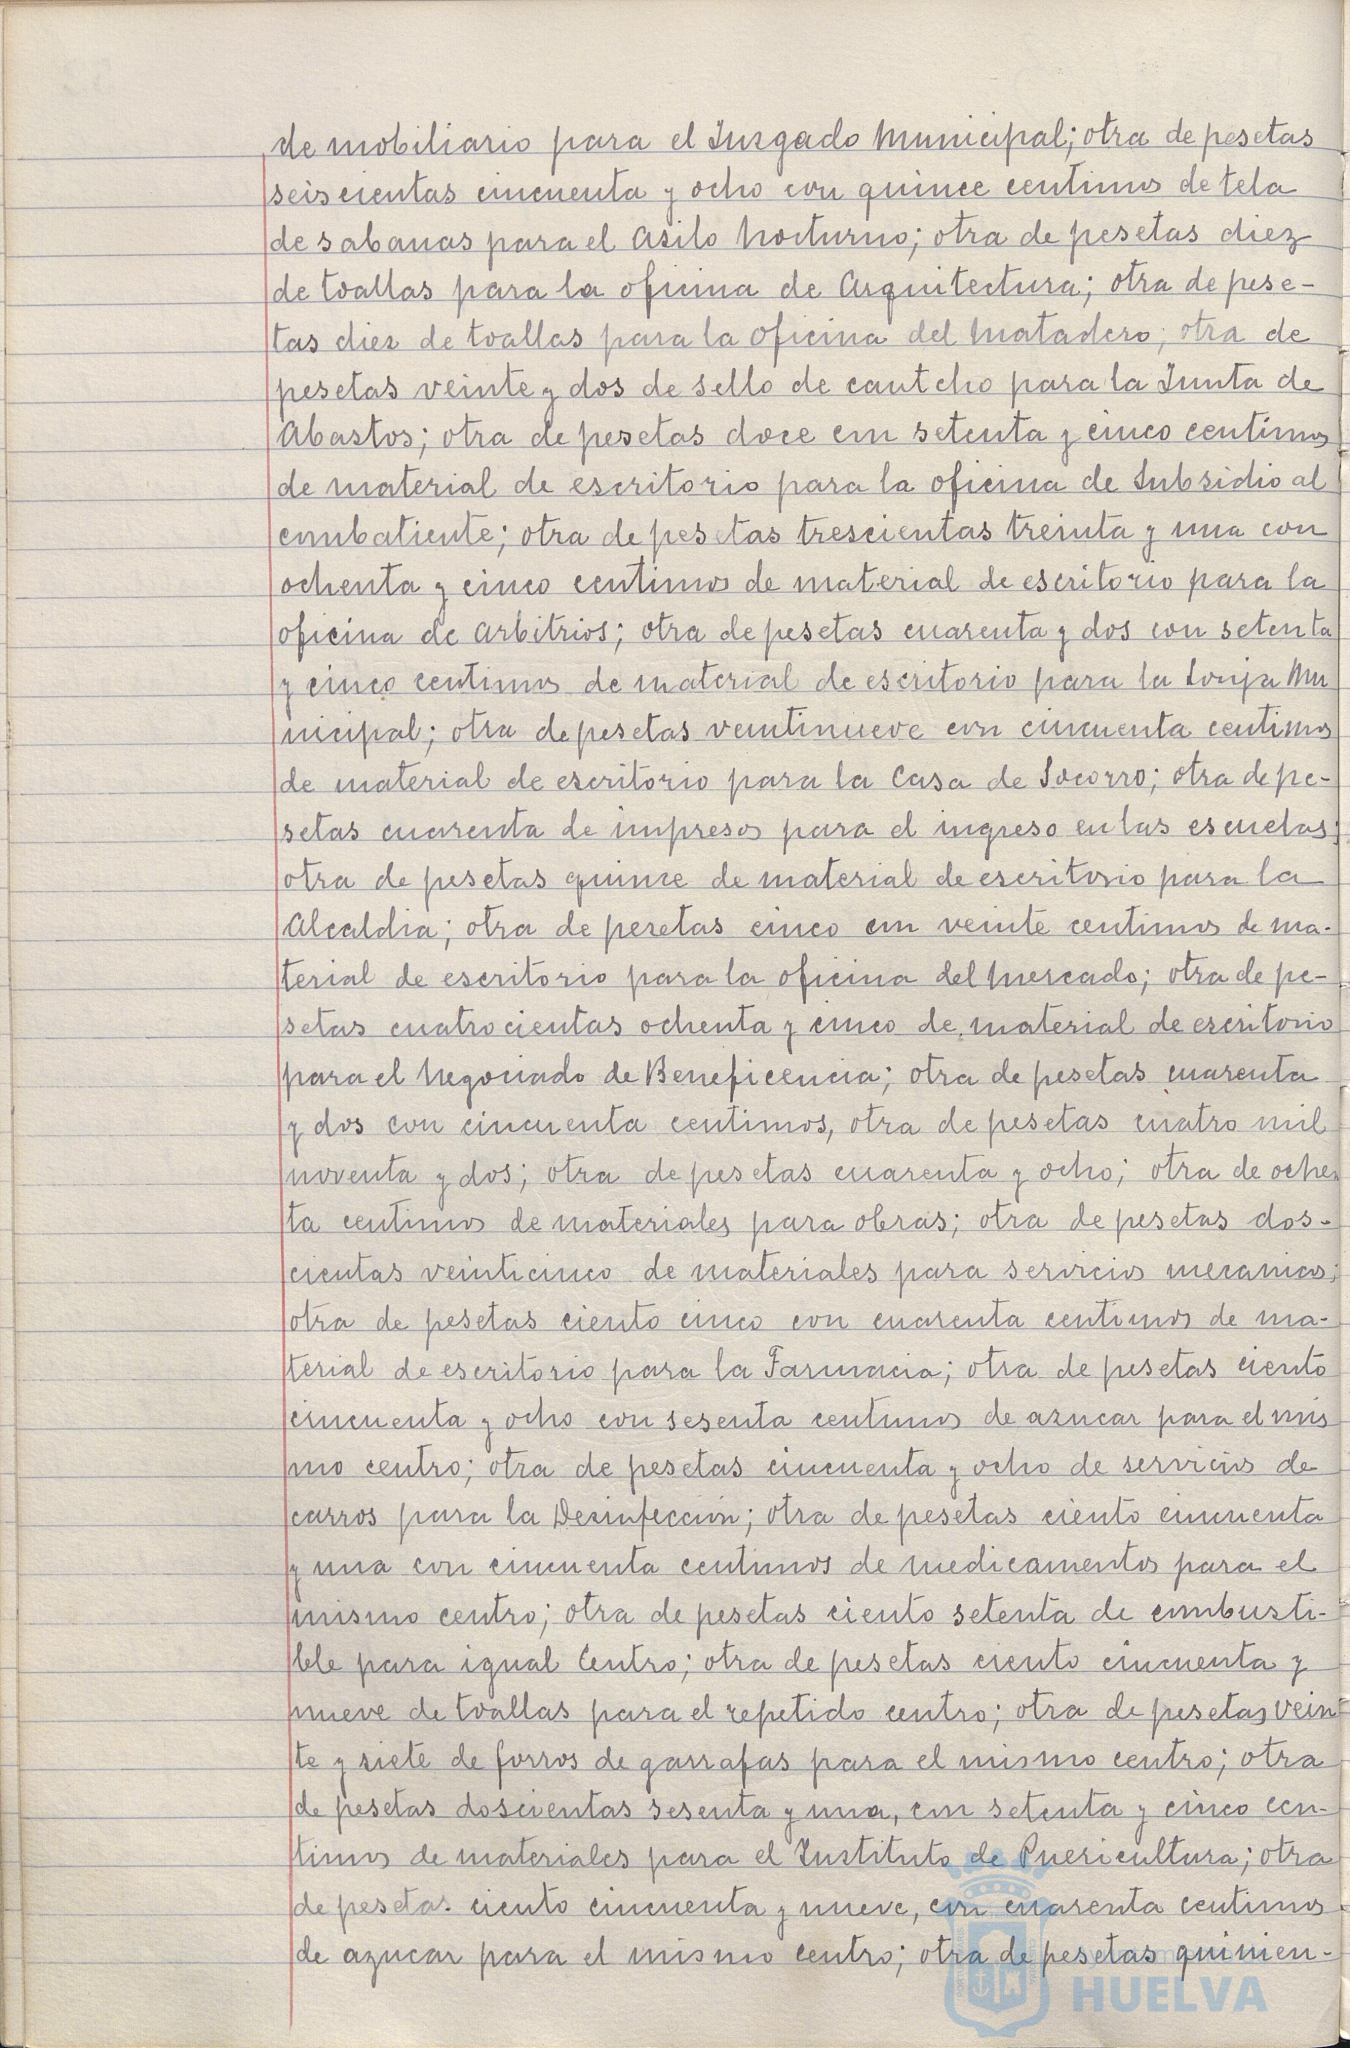 de mobiliario para el Juzgado Municipal; otra de pesetas
seiscientas cincuenta y ocho con quince centimos de tela
de sabanas para el Asilo Nocturno; otra de pesetas diez
de toallas para la oficina de Arquitectura; otra de pese-
tas diez de toallas para la oficina del Matadero; otra de
pesetas veinte y dos de sello de cautcho para la Junta de
Abastos; otra de pesetas doce con setenta y cinco centimos
de material de escritorio para la oficina de Subsidio al
combatiente; otra de pesetas trescientas treinta y una con
ochenta y cinco centimos de material de escritorio para la
oficina de Arbitrios; otra de pesetas cuarenta y dos con setenta
y cinco centimos de material de escritorio para la Lonja Mu
nicipal; otra de pesetas veintinueve con cincuenta centimos
de material de escritorio para la Casa de Socorro; otra de pe-
setas cuarenta de impresos para el ingreso en las escuelas;
otra de pesetas quince de material de escritorio para la
Alcaldia; otra de pesetas cinco con veinte centimos de ma-
terial de escritorio para la oficina del Mercado; otra de pe-
setas cuatrocientas ochenta y cinco de material de escritorio
para el Negociado de Beneficencia; otra de pesetas cuarenta
y dos con cincuenta centimos, otra de pesetas cuatro mil
noventa y dos; otra de pesetas cuarenta y ocho; otra de ochen
ta centimos de materiales para obras; otra de pesetas dos-
cientas veinticinco de materiales para servicios mecanicos;
otra de pesetas ciento cinco con cuarenta centimos de ma-
terial de escritorio para la Farmacia; otra de pesetas ciento
cincuenta y ocho con sesenta centimos de azucar para el mis
mo centro; otra de pesetas cincuenta y ocho de servicios de
carros para la Desinfeccion; otra de pesetas ciento cincuenta
y una con cincuenta centimos de medicamentos para el
mismo centro; otra de pesetas ciento setenta de combusti-
ble para igual Centro; otra de pesetas ciento cincuenta y
nueve de toallas para el repetido centro; otra de pesetas vein
te y siete de forros de garrafas para el mismo centro; otra
de pesetas doscientas sesenta y una, con setenta y cinco cen-
timos de materiales para el Instituto de Puericultura; otra
de pesetas ciento cincuenta y nueve, con cuarenta centimos
de azucar para el mismo centro; otra de pesetas quinien-
HUELVA